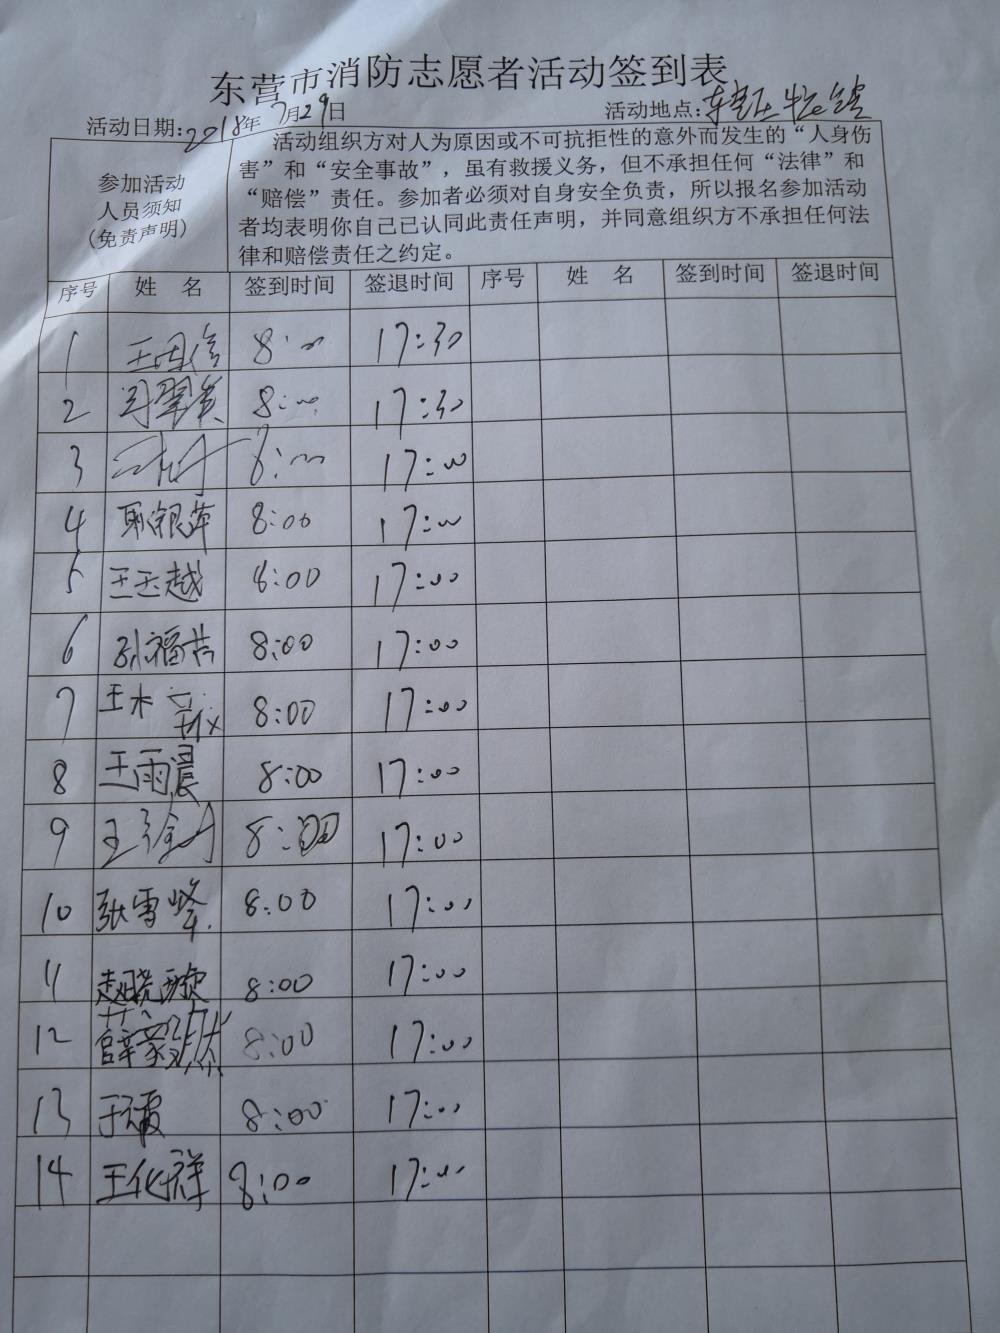 东营市消防志愿者活动签到表
活动日期:2018年7月29日 活动地点:
参加活动
人员须知
(免责声明)
活动组织方对人为原因或不可抗拒性的意外而发生的“人身伤
害”和“安全事故”，虽有救援义务，但不承担任何“法律”和
“赔偿”责任。参加者必须对自身安全负责，所以报名参加活动
者均表明你自己已认同此责任声明，并同意组织方不承担任何法
律和赔偿责任之约定。
序号 姓 名 签到时间 签退时间 序号 姓 名 签到时间 签退时间
1 王国信 8:00 17:30
2 8:00 17:30
3 8:00 17:00
4 耿银萍 8:00 17:00
5 王玉越 8:00 17:00
6 孙福吉 8:00 17:00
7 王木 8:00 17:00
8 王雨晨 8:00 17:00
9 王 8:00 17:00
10 张雪峰 8:00 17:00
11 赵晓璇 8:00 17:00
12 薛毅然 8:00 17:00
13 于霞 8:00 17:00
14 王化祥 8:00 17:00